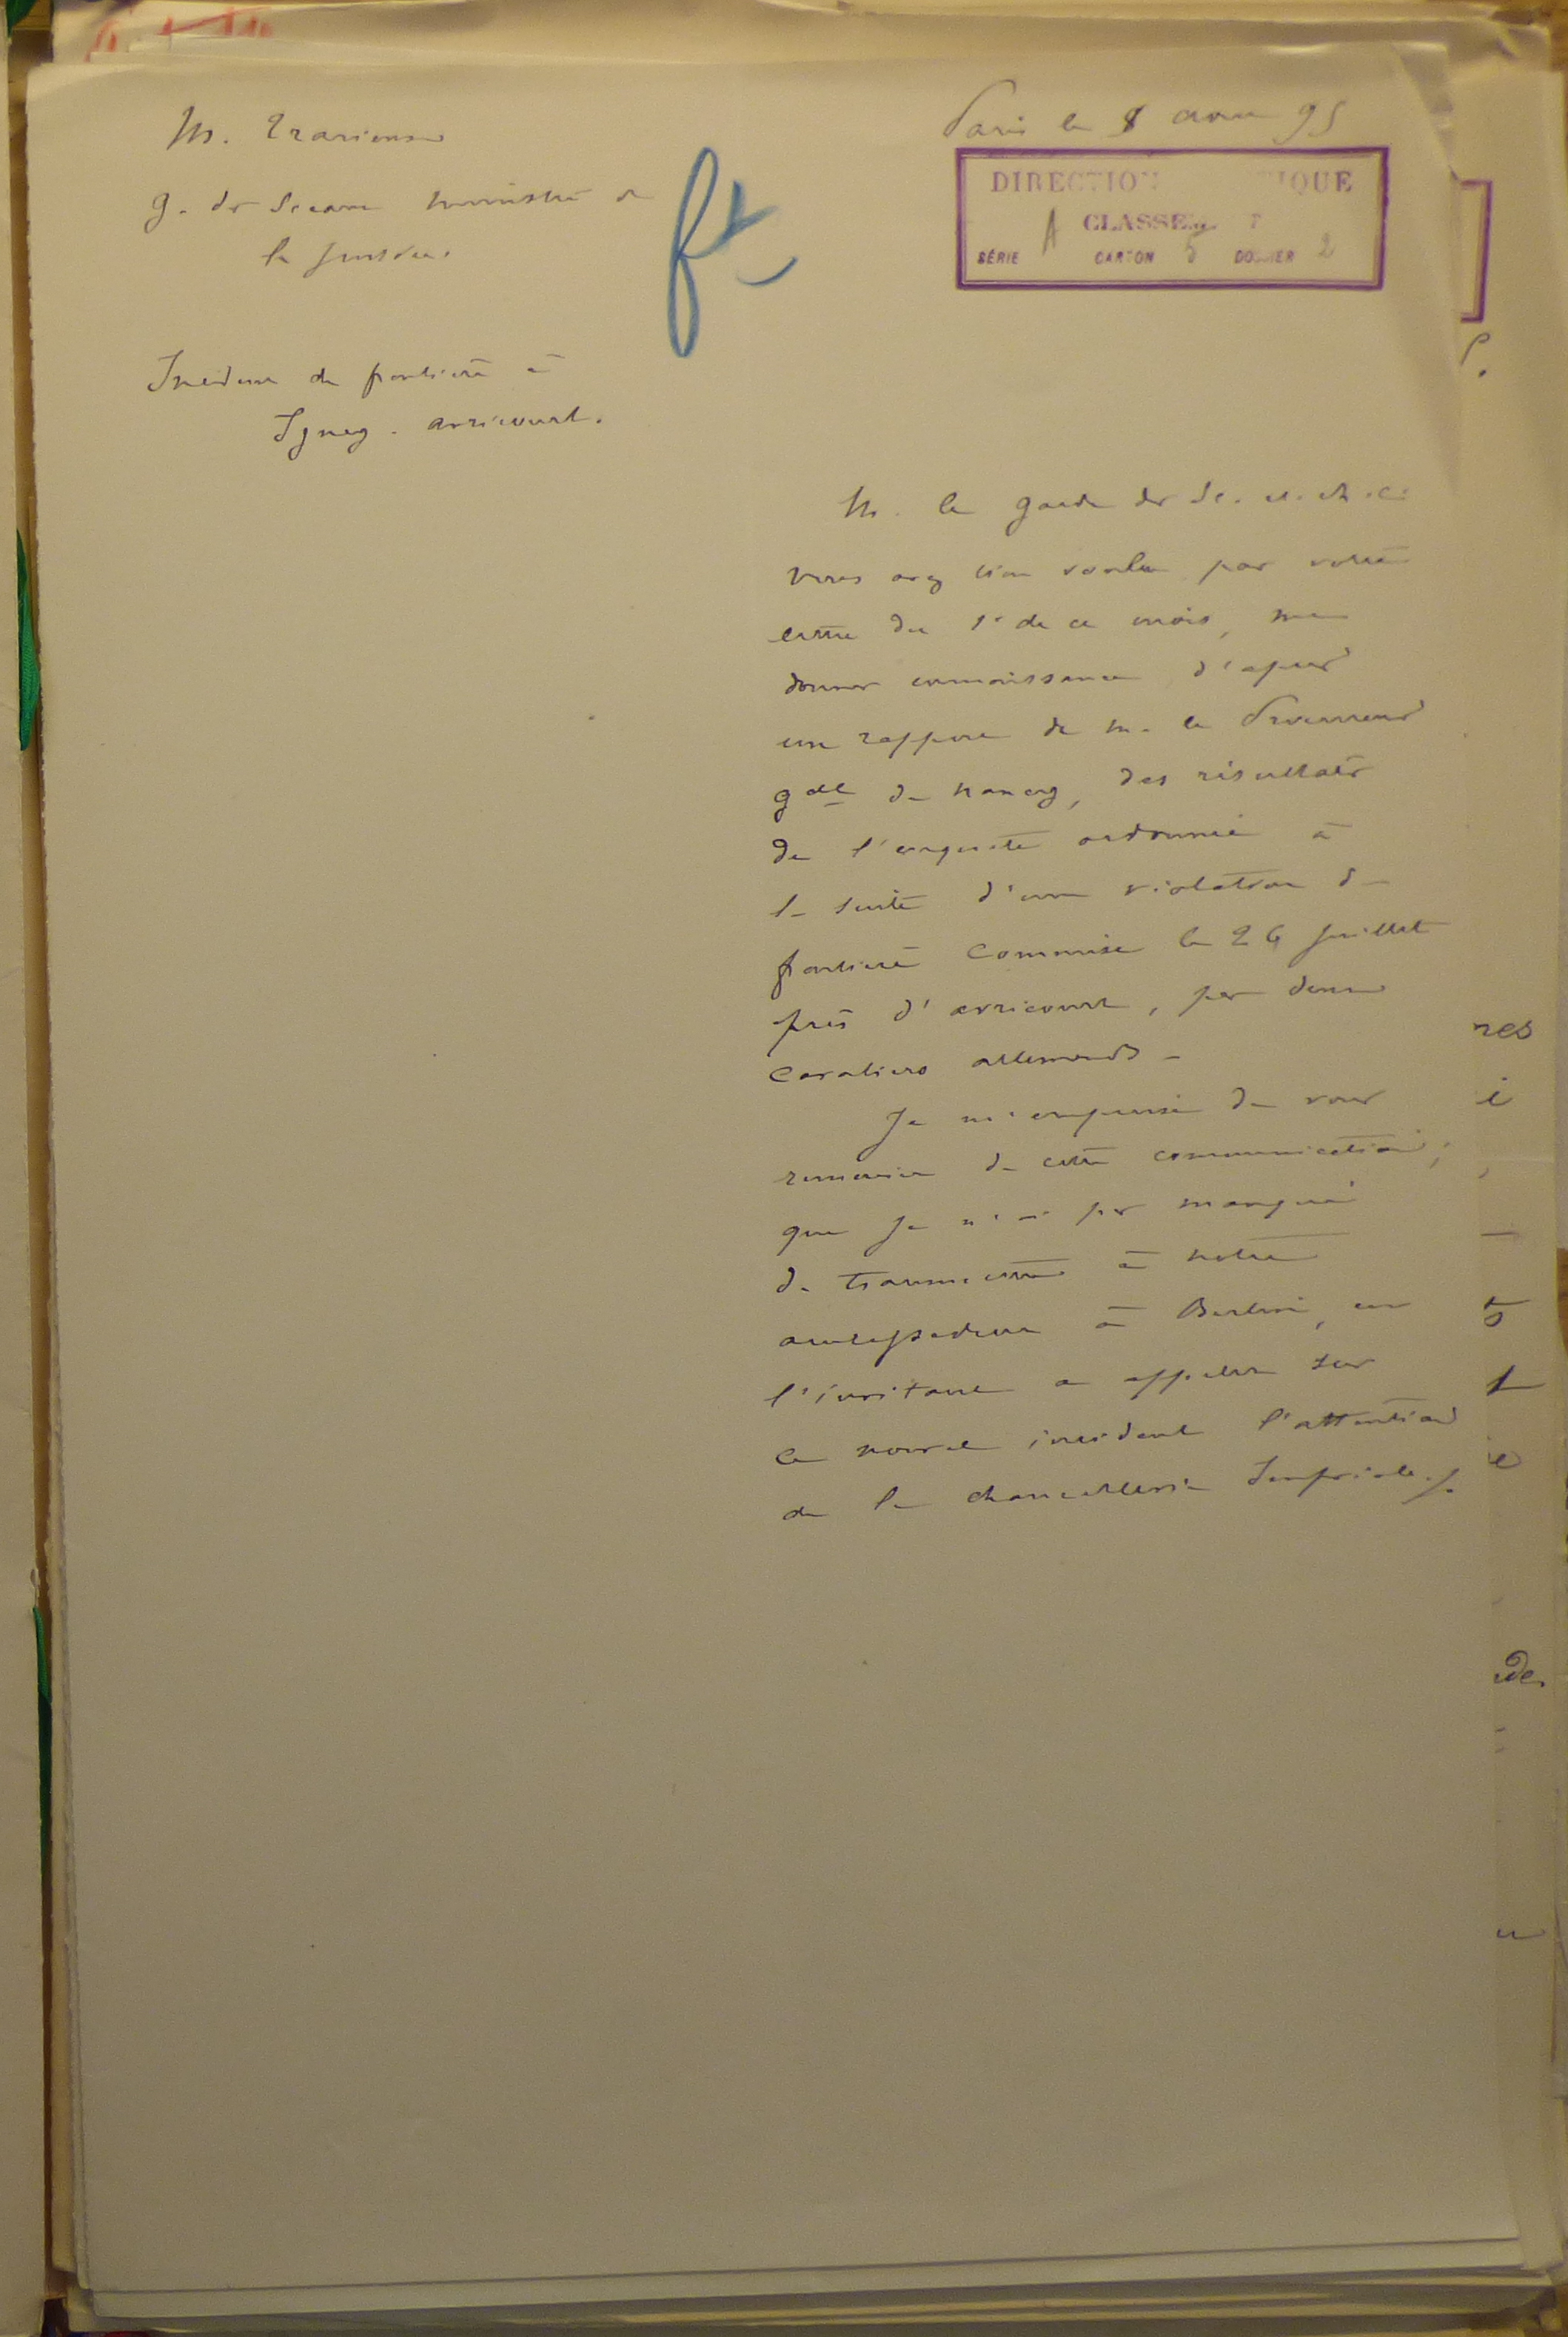 M. Trarieux
g. des Sceaux ministre de
la justice.
Paris le 8 aout 95
DIRECTION TIQUE
CLASSEMENT
SÉRIE A CARTON 5 DOSSIER 2
Incident de frontière à
Igney-Avricourt.
M. le garde des Sc. et ch. c.
vous avez bien voulu par votre
lettre du 1er de ce mois, me
donner connaissance d'après
un rapport de M. le Procureur
gal de Nancy, des résultats
de l'enquête ordonnée à
la suite d'une violation de
frontière commise le 26 juillet
près d'Avricourt, par deux
cavaliers allemands.
Je m'empresse de vous
remercier de cette communication,
que je n'ai pas manqué
de transmettre à notre
ambassadeur à Berlin, en
l'invitant à appeler sur
ce nouvel incident l'attention
de la chancellerie Impériale.